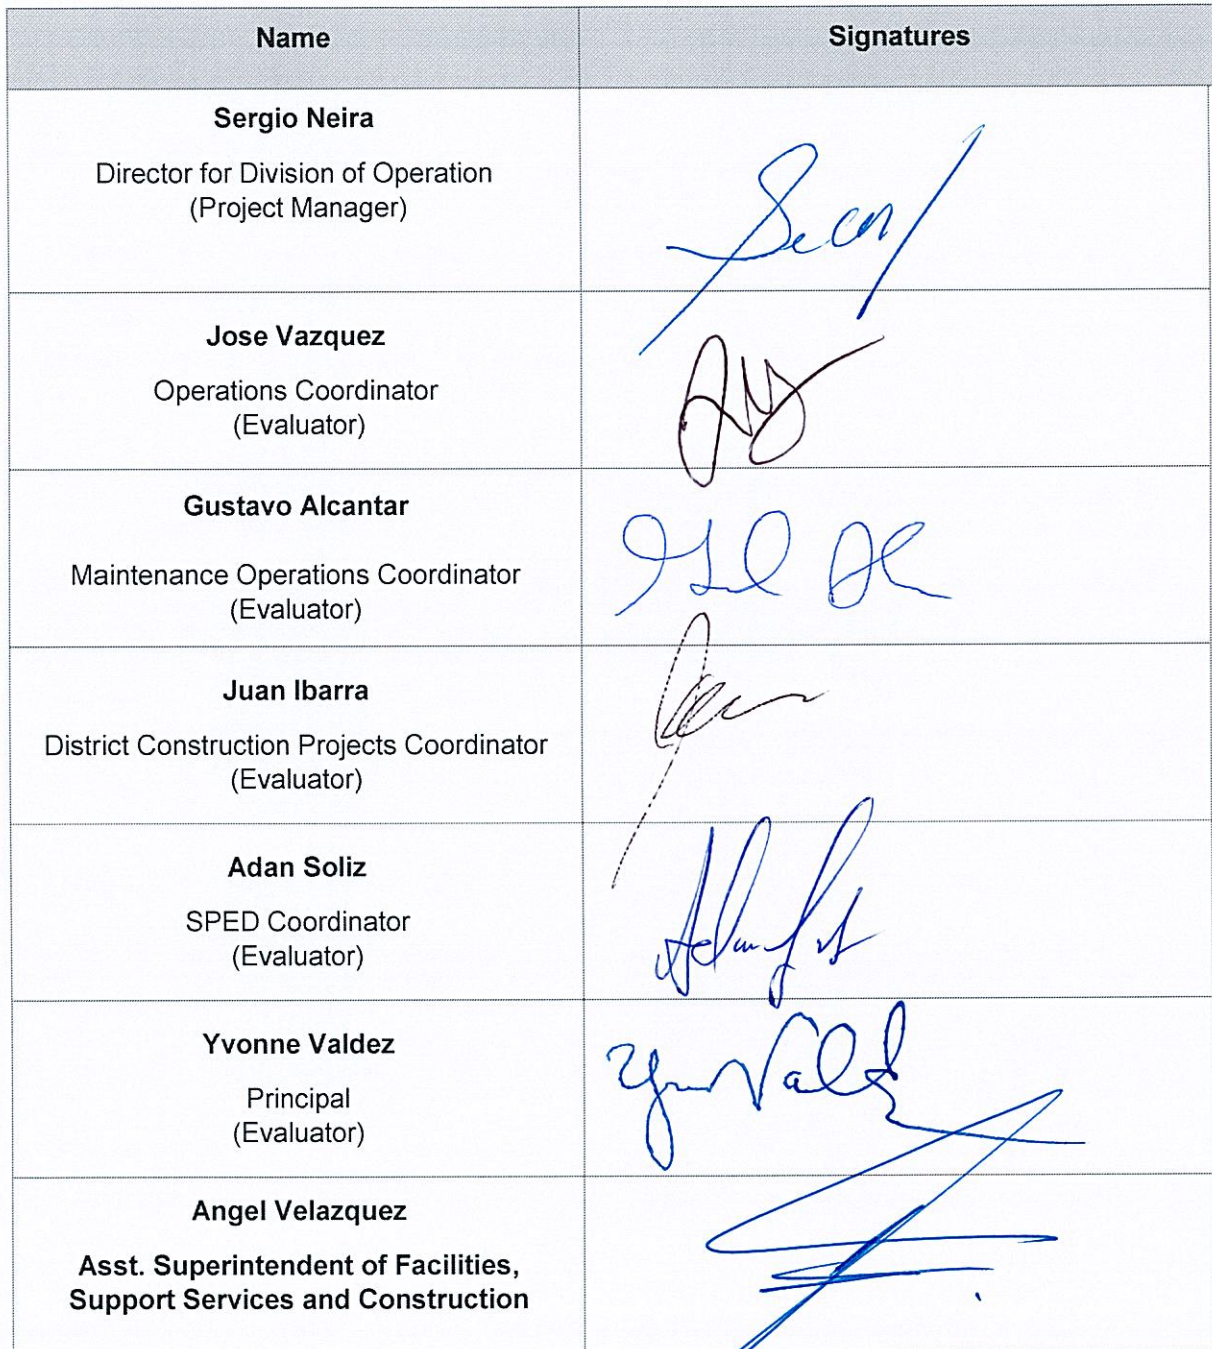 Name
Signatures
Sergio Neira
Director for Division of Operation
(Project Manager)
Jose Vazquez
Operations Coordinator
(Evaluator)
Gustavo Alcantar
Maintenance Operations Coordinator
(Evaluator)
Juan Ibarra
District Construction Projects Coordinator
(Evaluator)
Adan Soliz
SPED Coordinator
(Evaluator)
Yvonne Valdez
Principal
(Evaluator)
Angel Velazquez
Asst. Superintendent of Facilities,
Support Services and Construction